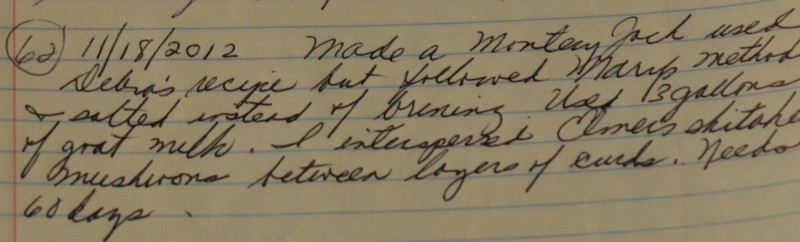 62 11/18/2012 Made a Monterey Jack used
Debra's recipe but followed Mary's method
& salted instead of brining. Used 3 gallons
of goat milk. I interspersed Elmers shitake
mushrooms between layers of curds. Needs
60 days.